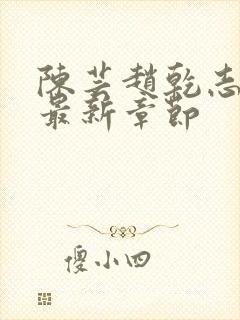 陳芸趙乾志
最新章節
傻小四